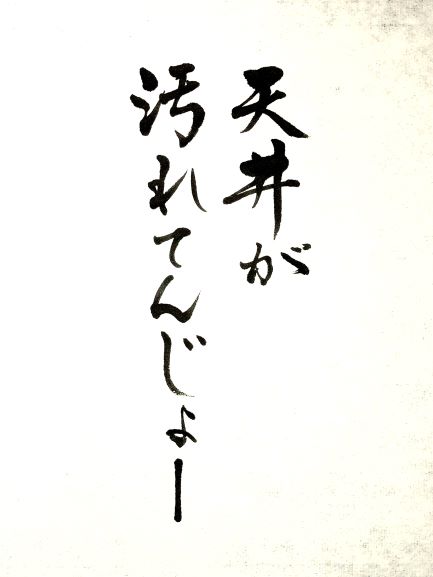 天井が
汚れてんじょー